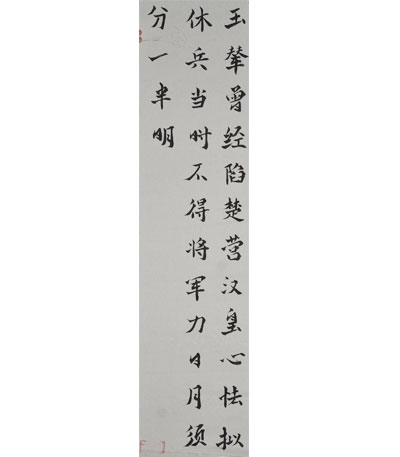 玉辇曾经陷楚营汉皇心怯拟
休兵当时不得将军力日月须
分一半明